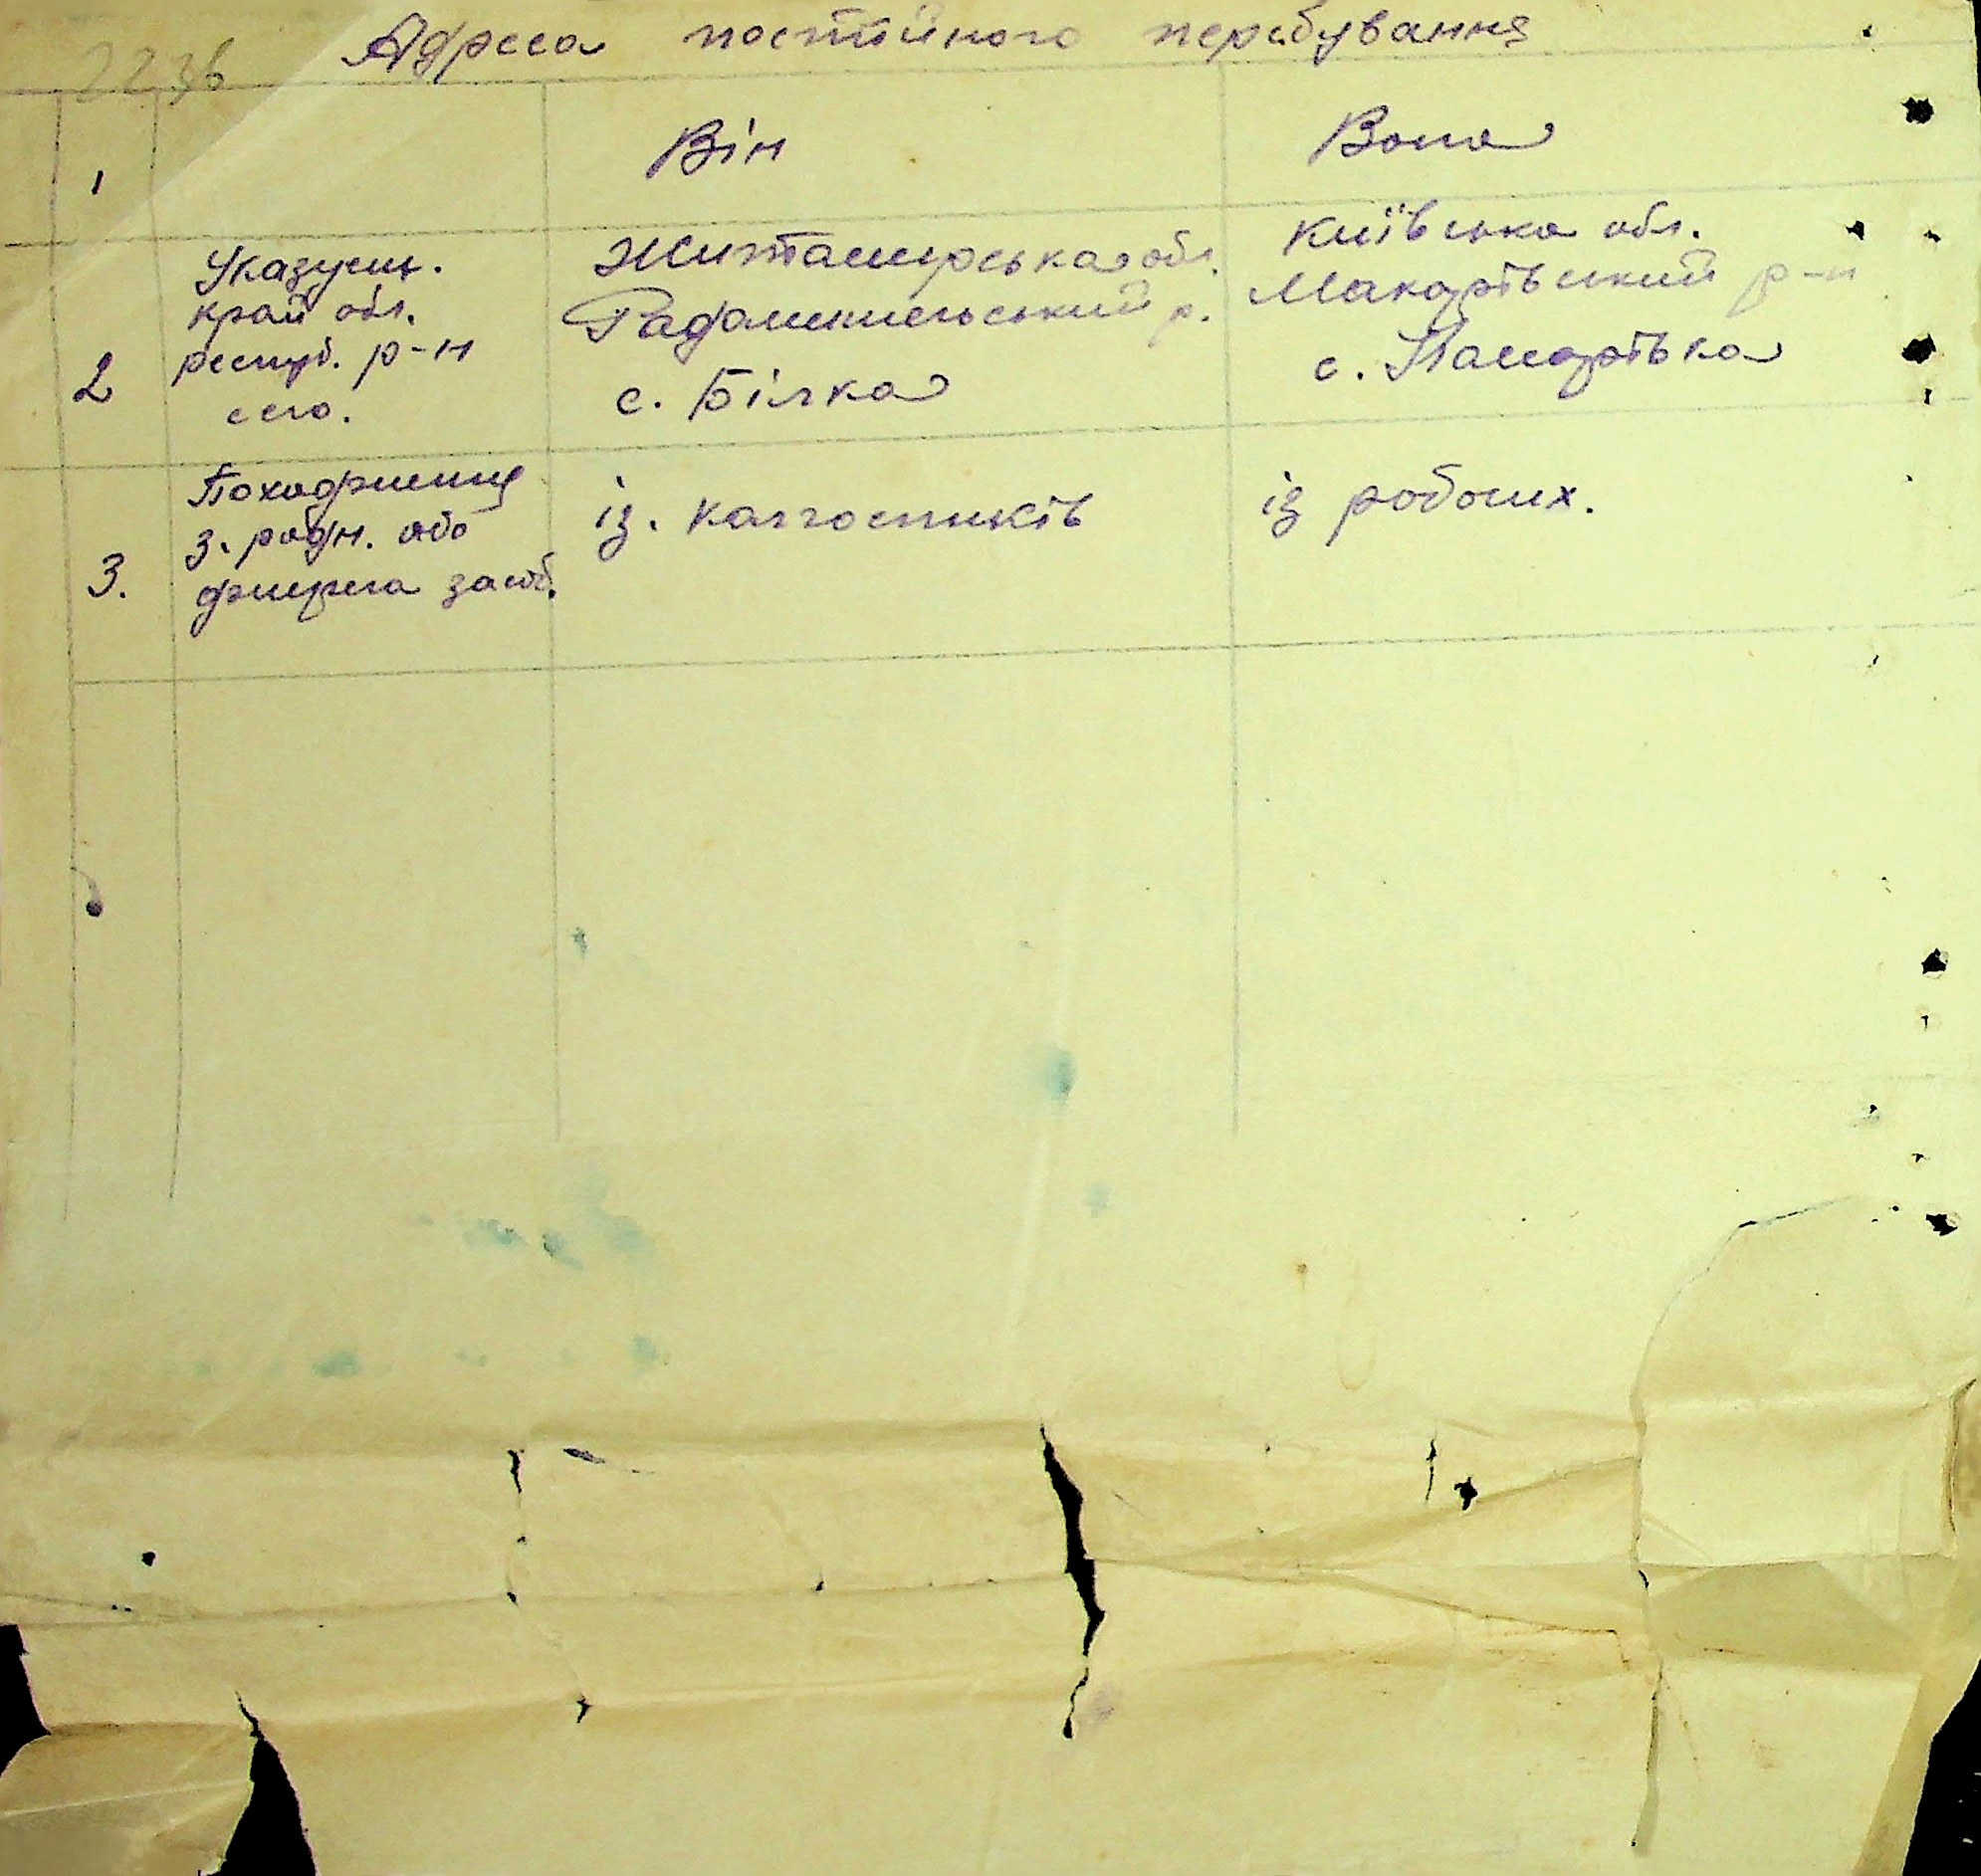 Адреса постійного перебування
1 Він Вона
2 Указуєць. край обл. респуб. р-н село.
Житамирська обл. Радомишельський р. с. Білка
Київська обл. Макарівський р-н с. Комарівка
3. Походження з. родн. або джерела засоб.
із. колгоспників
із робочих.